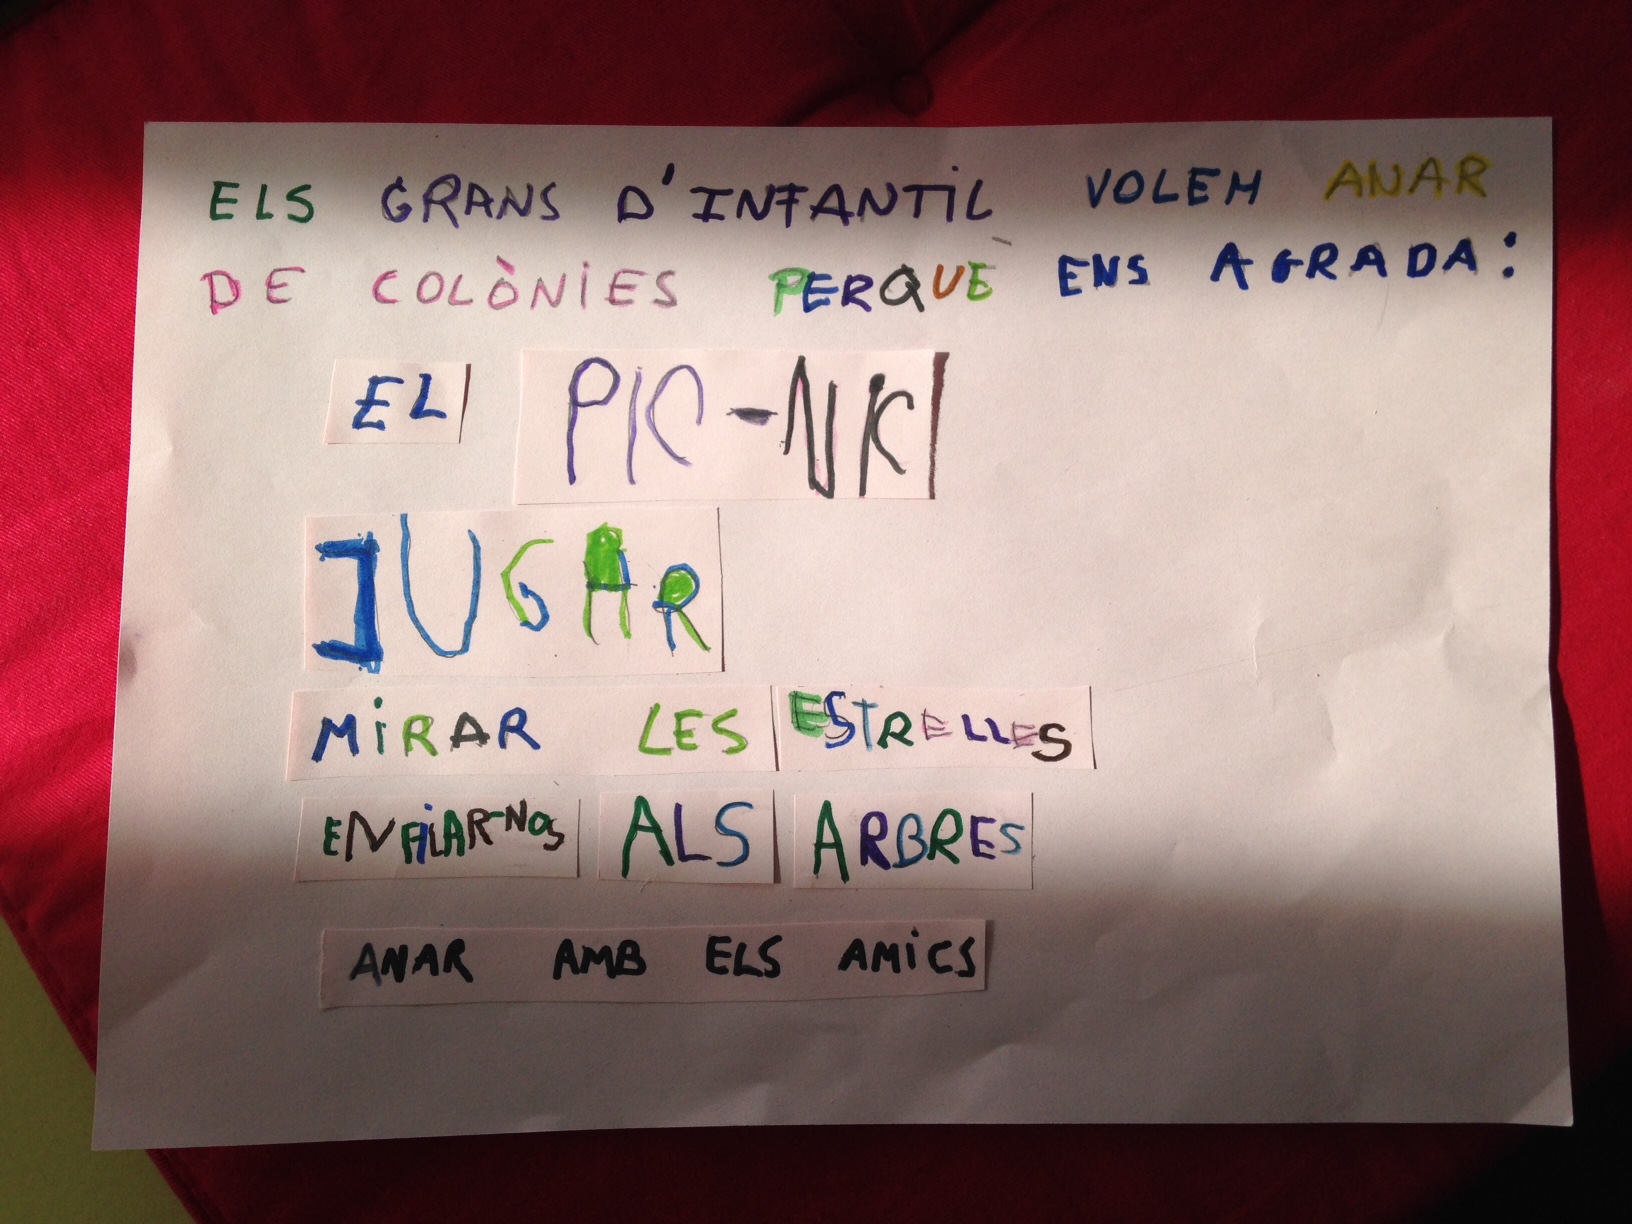 ELS GRANS D'INFANTIL VOLEM ANAR
DE COLÒNIES PERQUÈ ENS AGRADA:
EL PIC-NIC
JUGAR
MIRAR LES ESTRELLES
ENFILAR-NOS ALS ARBRES
ANAR AMB ELS AMICS